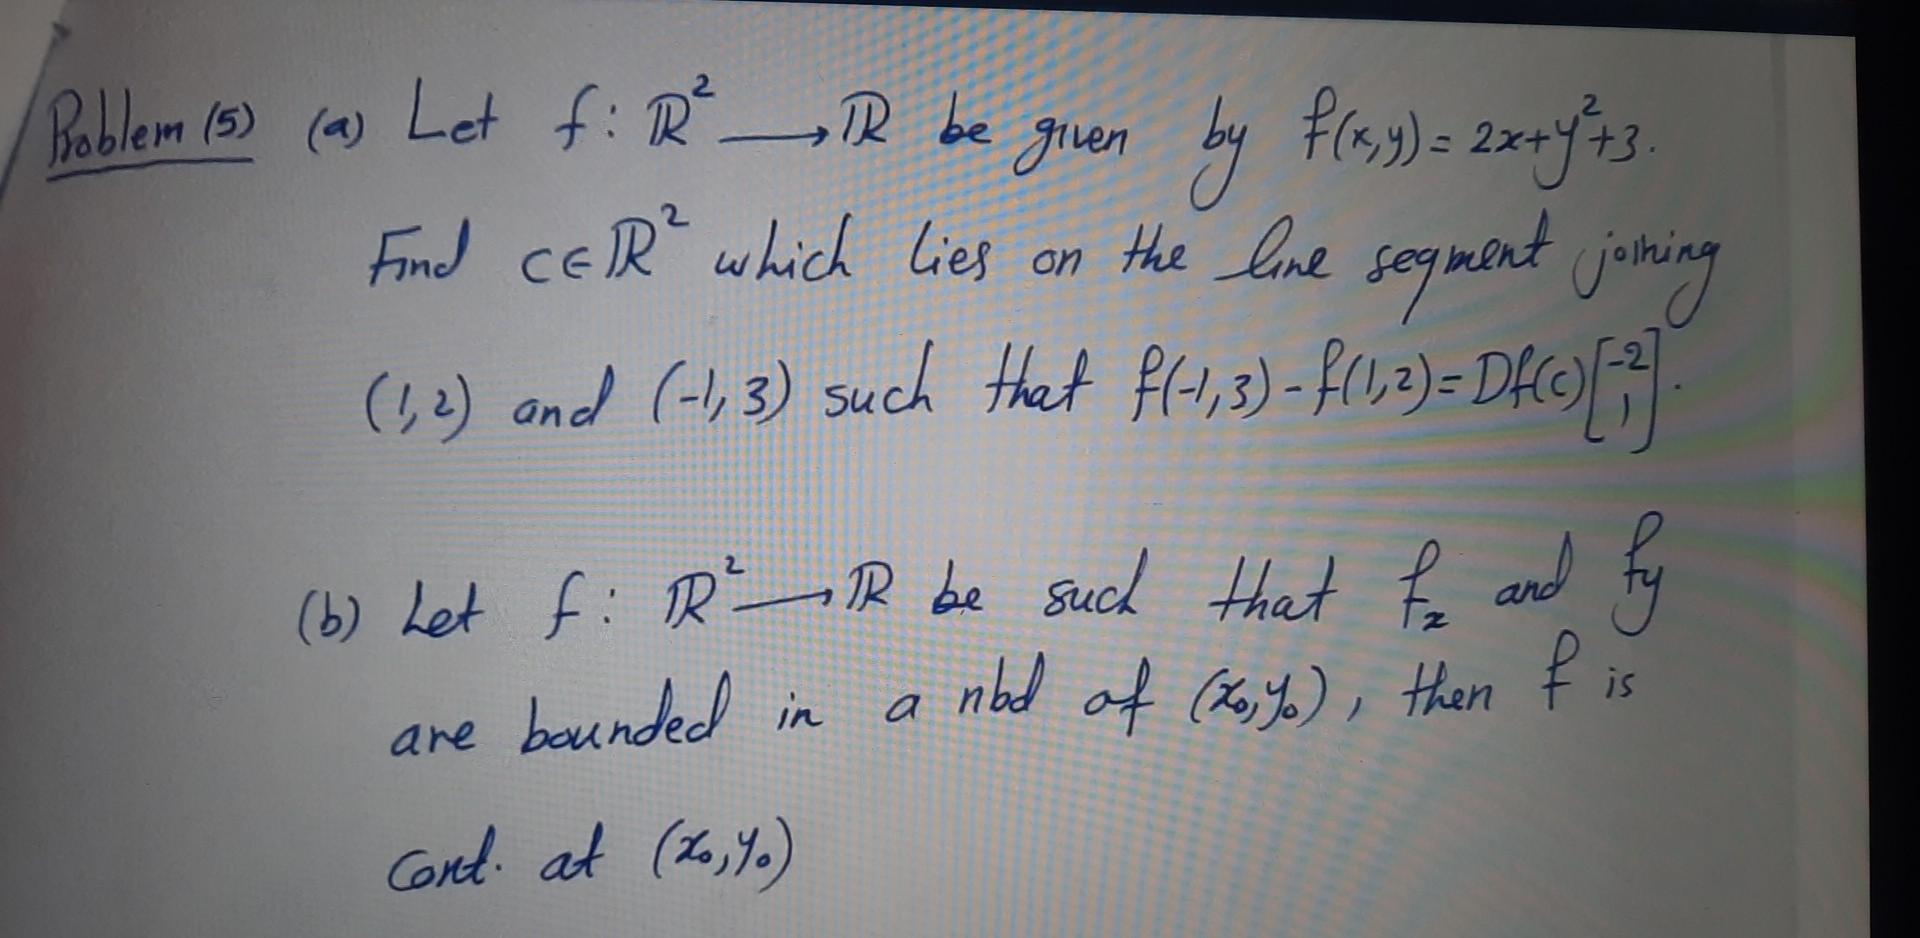 Problem (5) (a) Let f: ℝ² → ℝ be given by f(x,y) = 2x+y²+3.
Find c∈ℝ² which lies on the line segment joining
(1,2) and (-1,3) such that f(-1,3)-f(1,2)=Df(c)[-2 1].
(b) Let f: ℝ² → ℝ be such that fₓ and fy
are bounded in a nbd of (x₀,y₀), then f is
cont. at (x₀,y₀)